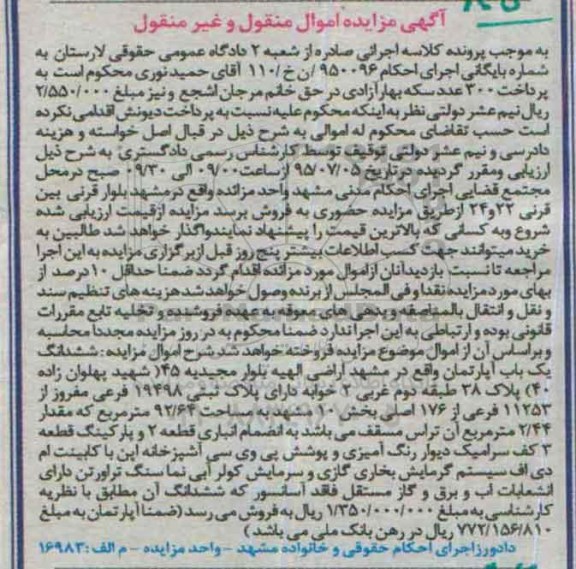 آگهی مزایده اموال منقول و غیر منقول
به موجب پرونده کلاسه اجرائی صادره از شعبه ۲ دادگاه عمومی حقوقی لارستان به
شماره بایگانی اجرای احکام ۹۵۰۰۹۶ /ن خ /۱۱۰ آقای حمید نوری محکوم است به
پرداخت ۳۰۰ عدد سکه بهار آزادی در حق خانم مرجان اشجع و نیز مبلغ ۲/۵۵۰/۰۰۰
ریال نیم عشر دولتی نظر به اینکه محکوم علیه نسبت به پرداخت دیونش اقدامی نکرده
است حسب تقاضای محکوم له اموالی به شرح ذیل در قبال اصل خواسته و هزینه
دادرسی و نیم عشر دولتی توقیف توسط کارشناس رسمی دادگستری به شرح ذیل
ارزیابی ومقرر گردیده در تاریخ ۹۵/۰۷/۰۵ از ساعت ۰۹/۰۰ الی ۰۹/۳۰ صبح در محل
مجتمع قضایی اجرای احکام مدنی مشهد واحد مزائده واقع در مشهد بلوار قرنی بین
قرنی ۲۲و۲۴ از طریق مزایده حضوری به فروش برسد مزایده از قیمت ارزیابی شده
شروع وبه کسانی که بالاترین قیمت را پیشنهاد نمایندواگذار خواهد شد طالبین به
خرید میتوانند جهت کسب اطلاعات بیشتر پنج روز قبل از برگزاری مزایده به این اجرا
مراجعه تا نسبت بازدید آنان از اموال مورد مزائده اقدام گردد ضمنا حداقل ۱۰ درصد از
بهای مورد مزایده نقدا و فی المجلس از برنده وصول خواهد شد هزینه های تنظیم سند
و نقل و انتقال بالمناصفه و بدهی های معوقه به عهده فروشنده و تخلیه تابع مقررات
قانونی بوده و ارتباطی به این اجرا ندارد ضمنا محکوم به در روز مزایده مجددا محاسبه
و براساس آن از اموال موضوع مزایده فروخته خواهد شد شرح اموال مزایده : ششدانگ
یک باب آپارتمان واقع در مشهد اراضی الهیه بلوار مجیدیه ۴۵( شهید پهلوان زاده
۴۰) پلاک ۳۸ طبقه دوم غربی ۲ خوابه دارای پلاک ثبتی ۱۹۴۹۸ فرعی مفروز از
۱۱۲۵۳ فرعی از ۱۷۶ اصلی بخش ۱۰ مشهد به مساحت ۹۲/۶۴ مترمربع که مقدار
۲/۴۴ مترمربع آن تراس مسقف می باشد به انضمام انباری قطعه ۲ و پارکینگ قطعه
۳ کف سرامیک دیوار رنگ آمیزی و پوشش پی وی سی آشپزخانه اپن با کابینت ام
دی اف سیستم گرمایش بخاری گازی و سرمایش کولر آبی نما سنگ تراورتن دارای
انشعابات آب و برق و گاز مستقل فاقد آسانسور که ششدانگ آن مطابق با نظریه
کارشناسی به مبلغ ۱/۳۵۰/۰۰۰/۰۰۰ ریال به فروش می رسد (ضمنا آپارتمان به مبلغ
۷۷۲/۱۵۶/۸۱۰ ریال در رهن بانک ملی می باشد )
دادورز اجرای احکام حقوقی و خانواده مشهد – واحد مزایده – م الف : ۱۶۹۸۳